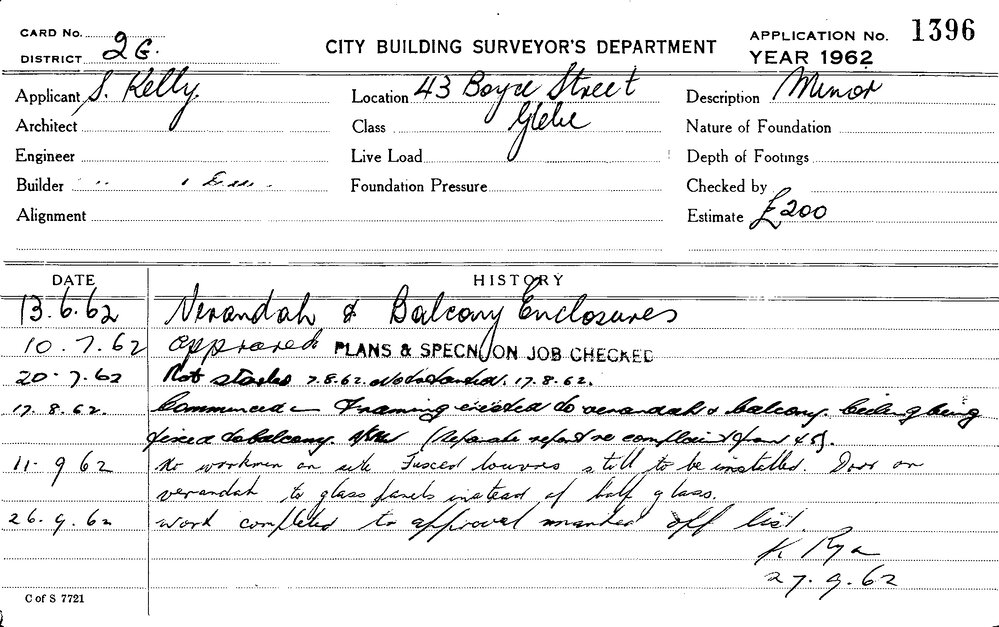 CARD No.
DISTRICT 2G.
CITY BUILDING SURVEYOR'S DEPARTMENT
APPLICATION No. 1396
YEAR 1962
Applicant S. Kelly. Location 43 Boyce Street Description Minor
Architect Class Glebe Nature of Foundation
Engineer Live Load Depth of Footings
Builder Foundation Pressure Checked by
Alignment Estimate £200
DATE HISTORY
13.6.62 Verandah & Balcony Enclosures
10.7.62 approved PLANS & SPECN. ON JOB CHECKED
20.7.62 Not started 7.8.62. Not started. 17.8.62.
17.8.62. Commenced - Framing erected to verandah & balcony. Ceiling being
fixed to balcony. (Separate report re complaint from 45).
11.9.62 No workmen on site louvres still to be installed. Door on
verandah to glass panels instead of half glass.
26.9.62 work completed to approval marked off list.
K Ryan
27.9.62
C of S 7721